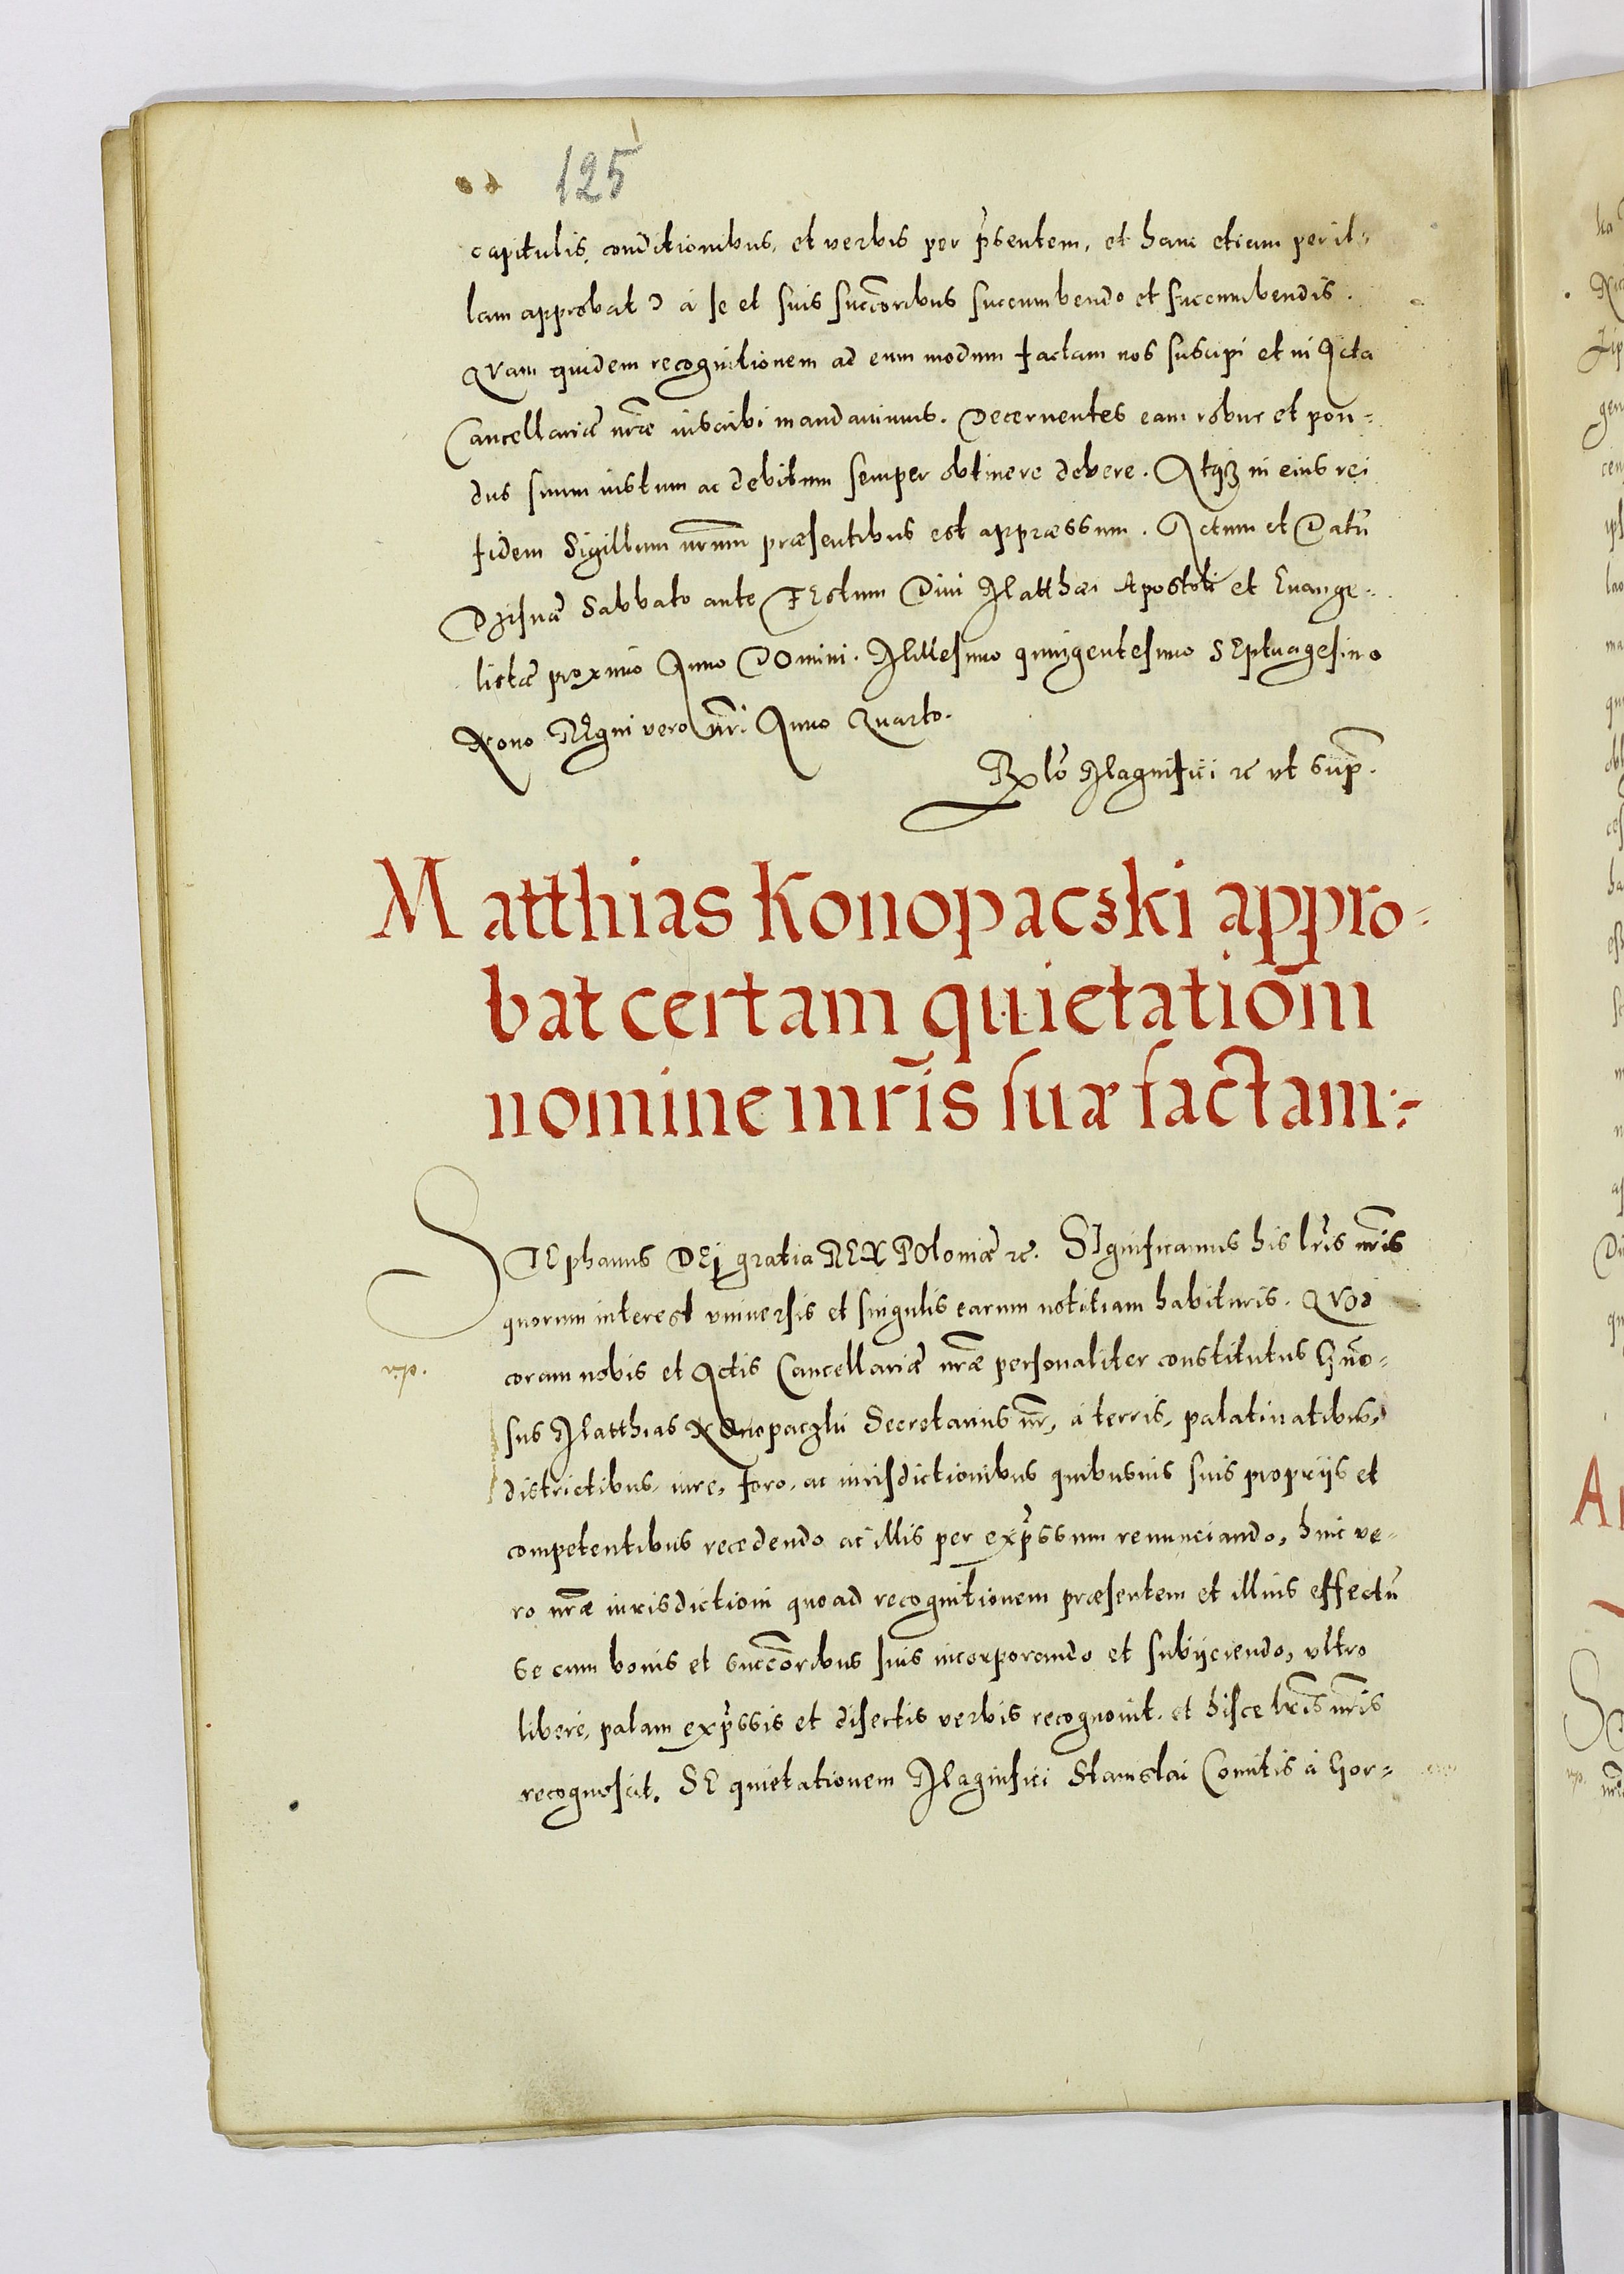 125
capitulis, conditionibus, et verbis per p̃sentem, et hanc etiam per il-
lam approbat) à se et suis succõribus succumbendo et succumbendis.
QVam quidem recognitionem ad eum modum factam nos suscipi et in Acta
Cancellariæ nr̃æ inscribi mandavimus. Decernentes eam robur et pon-
dus suum iustum ac debitum semper obtinere debere. Atqꝫ in eius rei
fidem Sigillum nr̃um præsentibus est appræssum. Actum et Datũ
Dzisnæ Sabbato ante FEstum Divi Matthæi Apostoli et Evange-
listæ proximo Anno DOmini. Millesimo quingentesimo SEptuagesimo
Nono REgni vero nr̃i Anno Quarto.
Rl̃o Magnifici ꝛc̃ ut sup̃.
Matthias Konopacski appro-
bat certam quietatiõm
nomine mr̃is suæ factam:-
STEphanus DEj gratia REX POloniæ ꝛc̃. SIgnificamus his lr̃is nr̃is
quorum interest vniversis et singulis earum notitiam habituris. QVod
coram nobis et Actis Cancellariæ nr̃æ personaliter constitutus Gño-
sus Matthias KOnopaczki Secretarius nr̃, à terris, palatinatibus,
districtibus, iure, foro, ac iurisdictionibus quibusvis suis proprijs et
competentibus recedendo ac illis per exp̃ssum renunciando, huic ve-
ro nr̃æ iurisdictioni quoad recognitionem præsentem et illius effectũ
se cum bonis et succõribus suis incorporando et subijciendo, vltro
libere, palam exp̃ssis et disertis verbis recognovit. et hisce lr̃is nr̃is
recognoscit. SE quietationem Magnifici Stanislai Comitis à Gor-